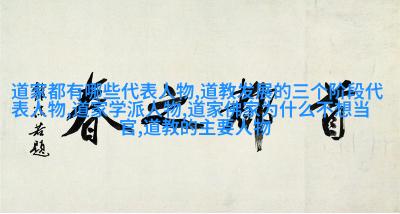 道家都有哪些代表人物,道教发展的三个阶段代
表人物,道家学派人物,道家佛家为什么不想当
官,道教的主要人物
首都之春
郭沫若題